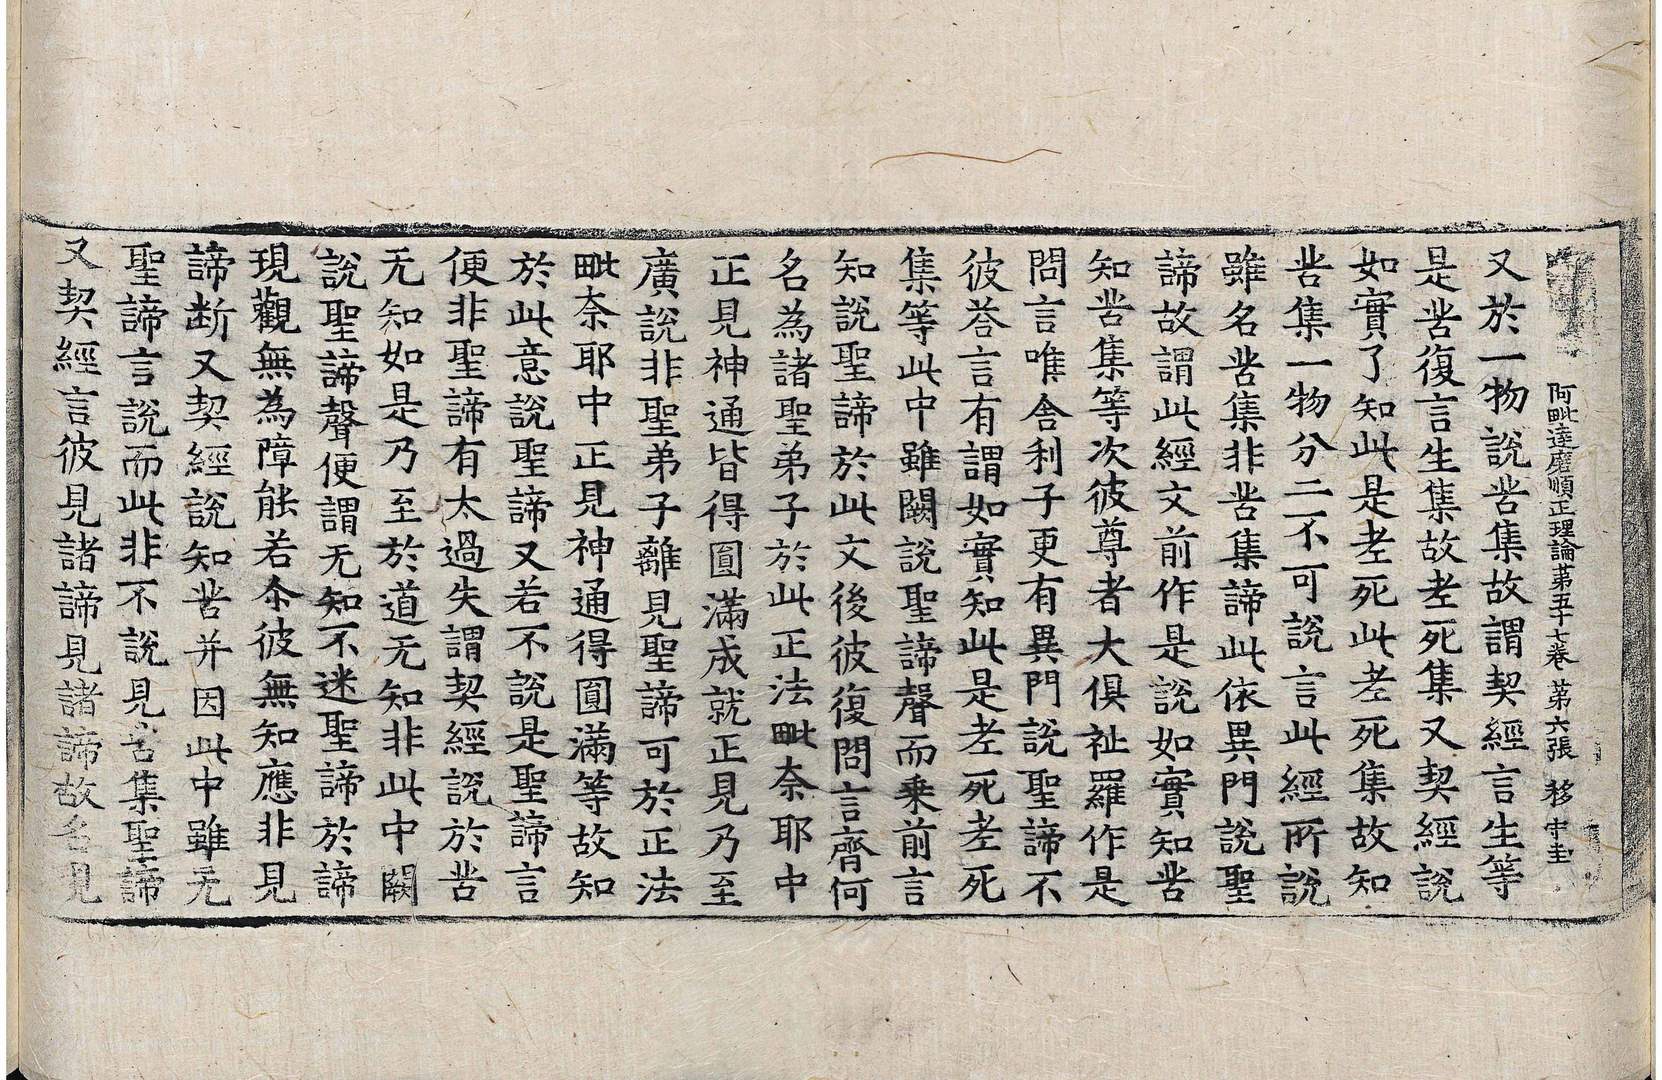 阿毗達磨順正理論第五十七卷 第六張 移 中圭
又於一物說苦集故謂契經言生等
是苦復言生集故老死集又契經說
如實了知此是老死此老死集故知
苦集一物分二不可說言此經所說
雖名苦集非苦集諦此依異門說聖
諦故謂此經文前作是說如實知苦
知苦集等次彼尊者大俱祉羅作是
問言唯舍利子更有異門說聖諦不
彼荅言有謂如實知此是老死老死
集等此中雖闕說聖諦聲而乘前言
知說聖諦於此文後彼復問言齊何
名為諸聖弟子於此正法毗奈耶中
正見神通皆得圓滿成就正見乃至
廣說非聖弟子離見聖諦可於正法
毗奈耶中正見神通得圓滿等故知
於此意說聖諦又若不說是聖諦言
便非聖諦有太過失謂契經說於苦
无知如是乃至於道无知非此中闕
說聖諦聲便謂无知不迷聖諦於諦
現觀無為障能若尒彼無知應非見
諦断又契經說知苦并因此中雖无
聖諦言說而此非不說見苦集聖諦
又契經言彼見諸諦見諸諦故名見